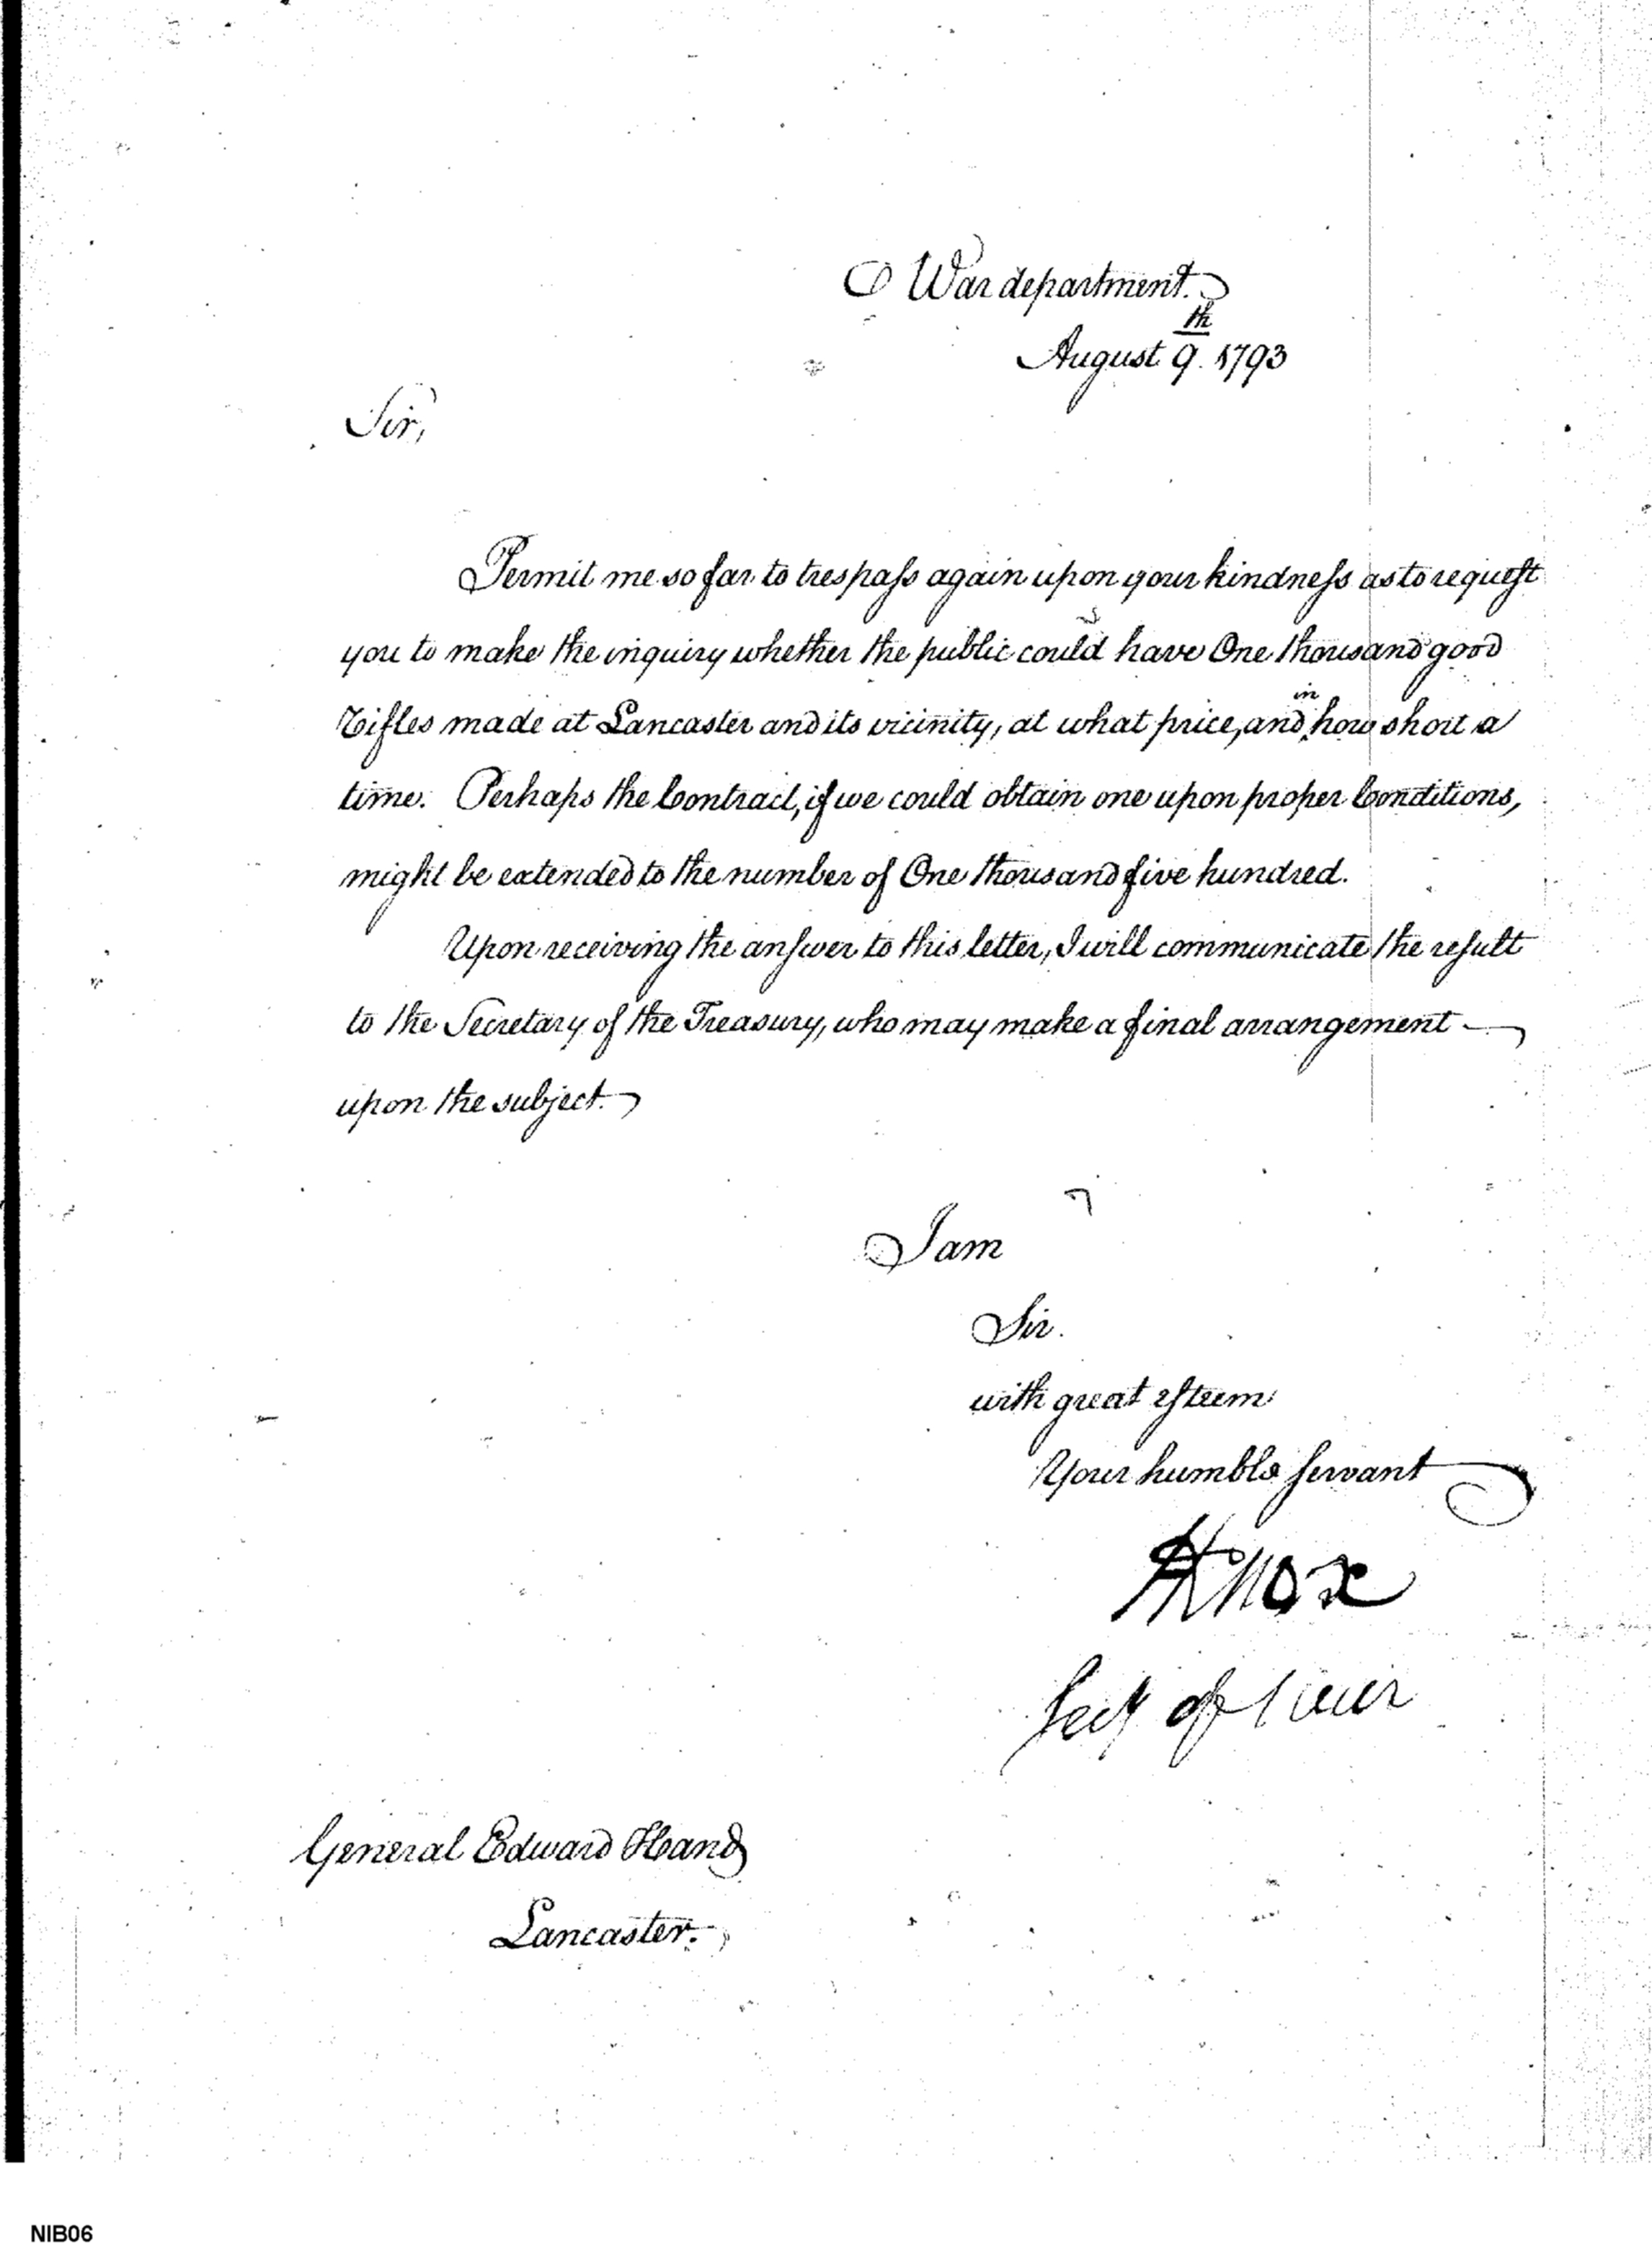 War department.
August 9th. 1793
Sir,
Permit me so far to trespass again upon your kindness as to request
you to make the inquiry whether the public could have One thousand good
Rifles made at Lancaster and its vicinity, at what price, and in how short a
time. Perhaps the Contract, if we could obtain one upon proper Conditions,
might be extended to the number of One thousand five hundred.
Upon receiving the answer to this letter, I will communicate the result
to the Secretary of the Treasury, who may make a final arrangement
upon the subject.
I am
Sir.
with great esteem
Your humble servant
HKnox
Secy of War
General Edward Hand
Lancaster.
NIB06